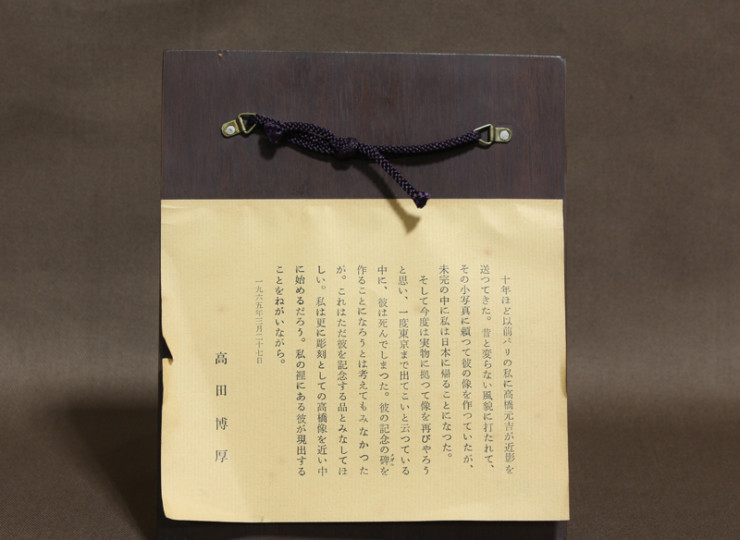 十年ほど以前パリの私に高橋元吉が近影を
送つてきた。昔と変らない風貌に打たれて、
その小写真に頼つて彼の像を作つていたが、
未完の中に私は日本に帰ることになつた。
そして今度は実物に拠つて像を再びやろう
と思い、一度東京まで出てこいと云つている
中に、彼は死んでしまつた。彼の記念の碑を
作ることになろうとは考えてもみなかつた
が。これはただ彼を記念する品とみなしてほ
しい。私は更に彫刻としての高橋像を近い中
に始めるだろう。私の裡にある彼が現出する
ことをねがいながら。
一九六五年三月二十七日
高田博厚